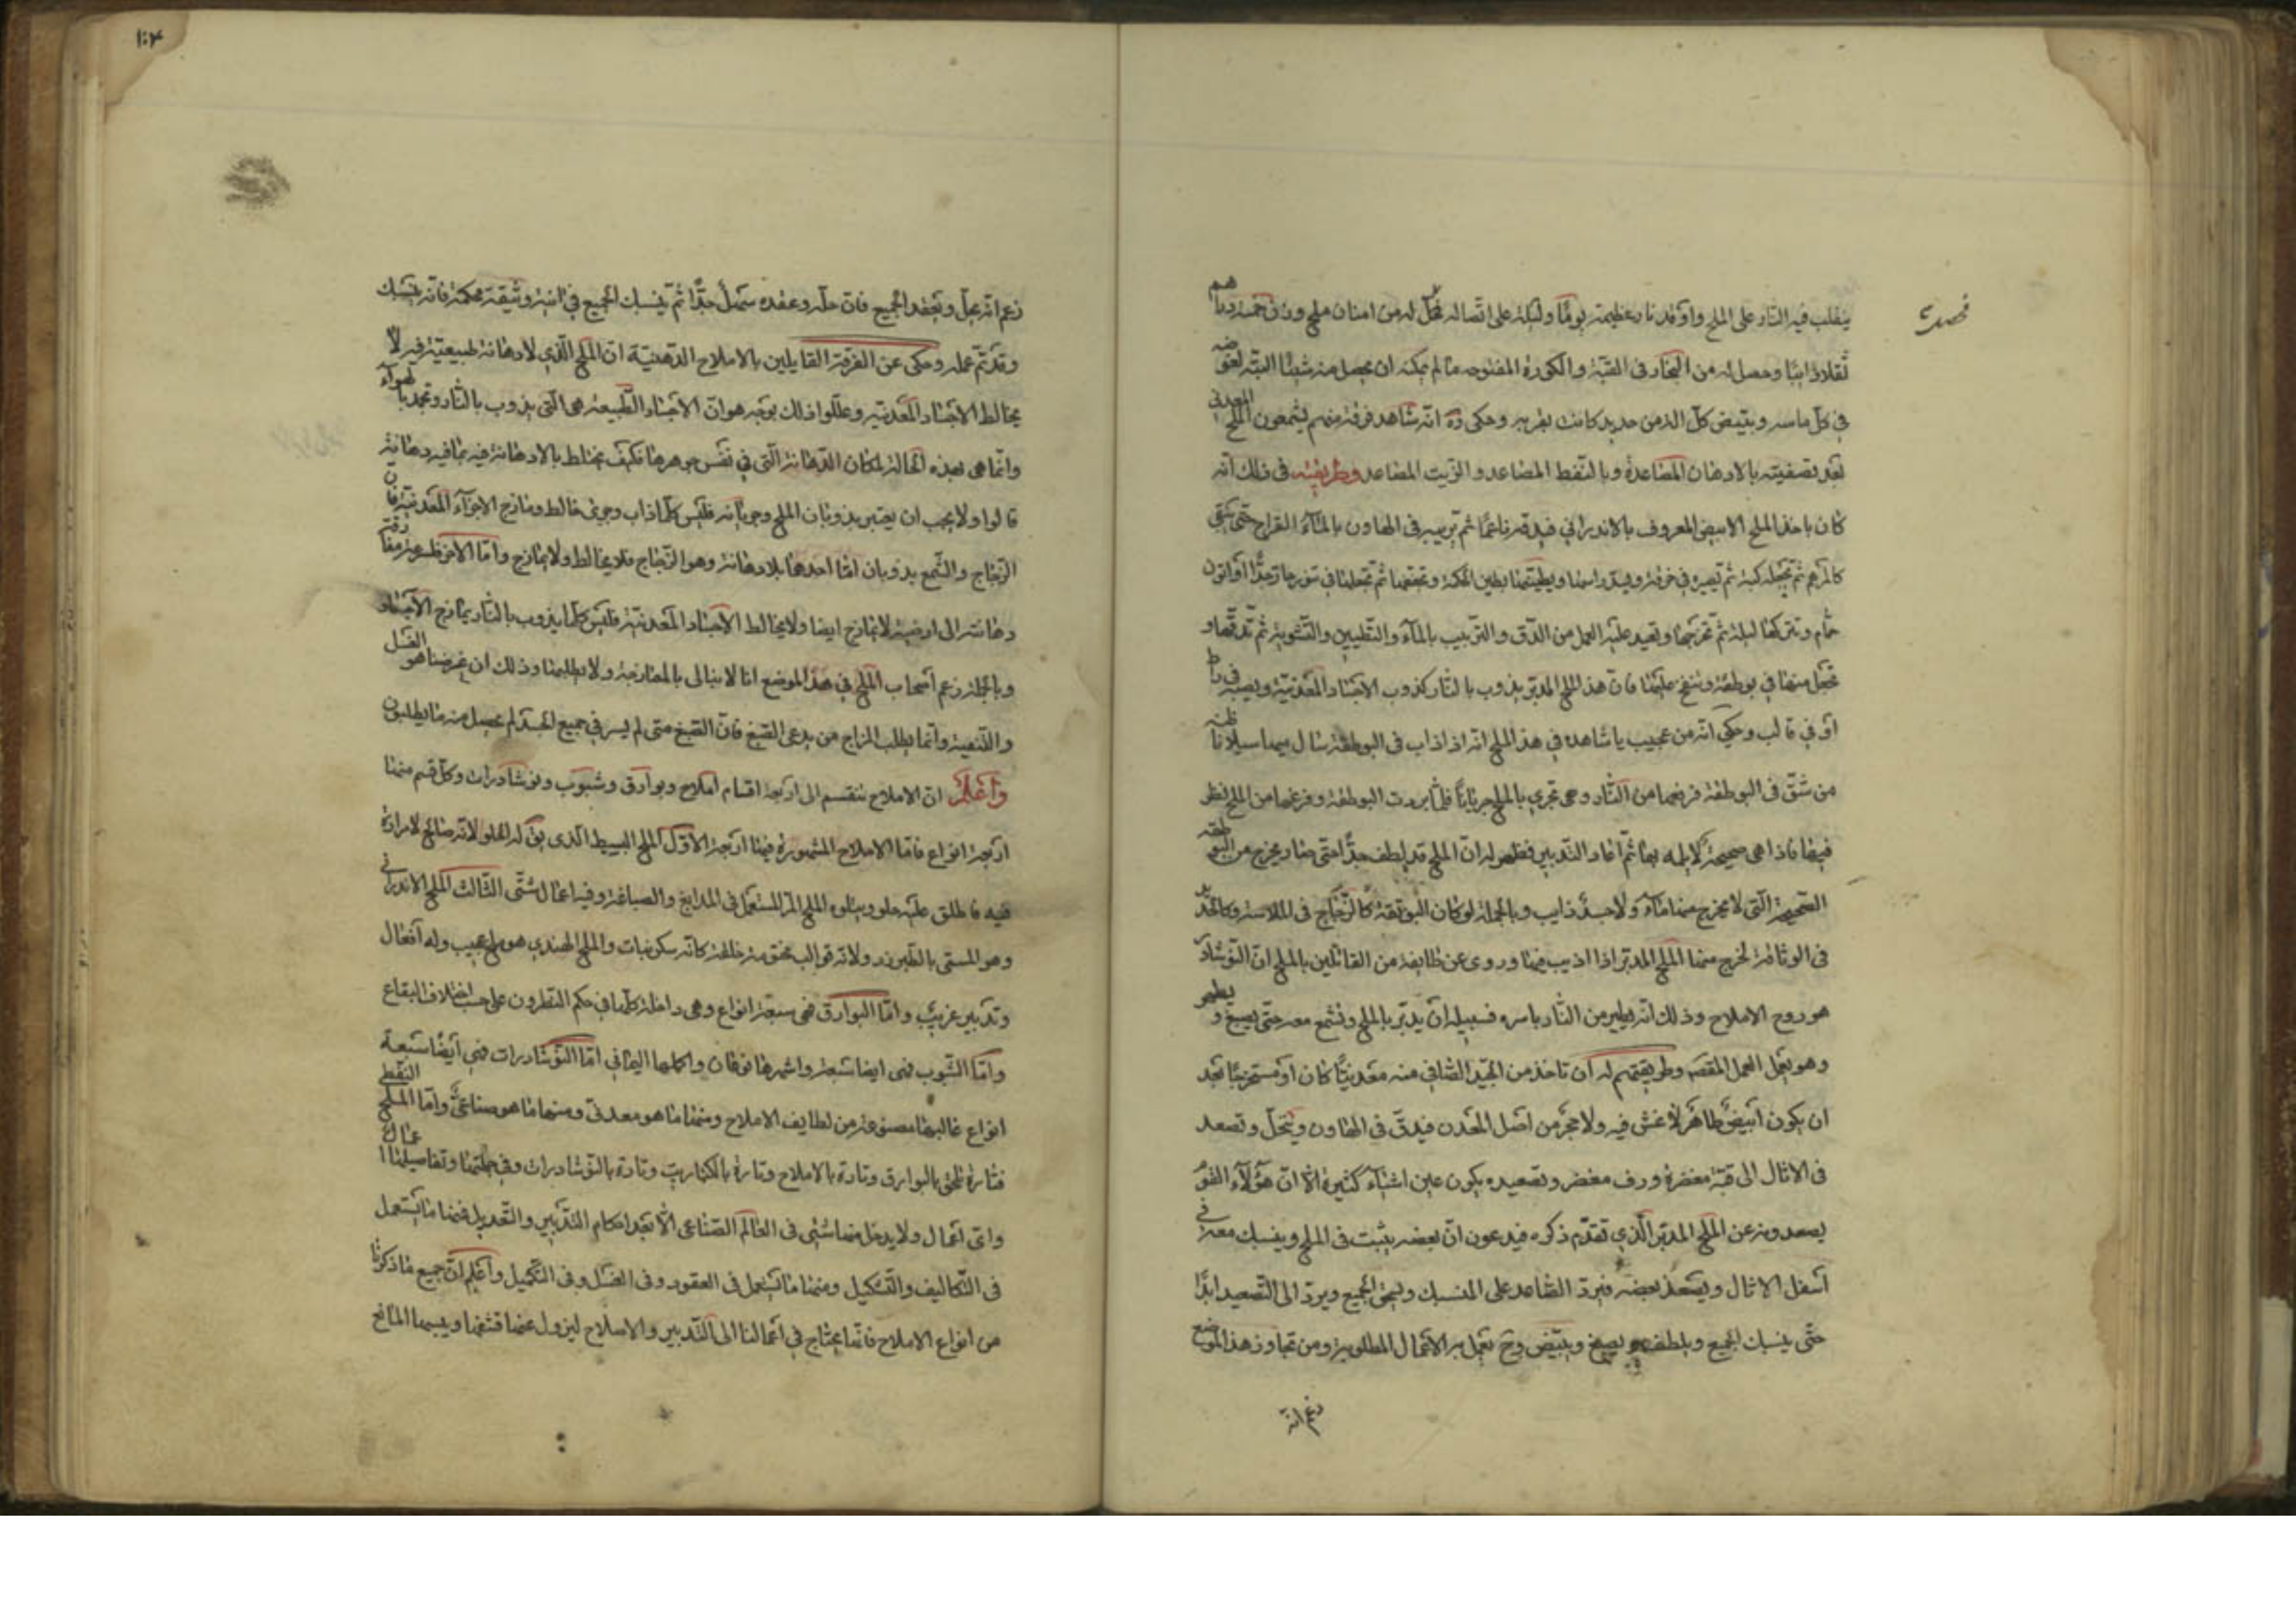 ينقلب فيه النار على الملح واوقد نار عظيمة يوما وليلة على اتصاله فحل له من امنان ملح وزن خمسة دراهم
ثقلا ذائبا وحصل له من البخار في القبة والكورة المفتوحة ما لم يمكنه ان يحصل منه شيئا البتة لغوصه
في كل ماسه وتبيض كل الة من حديد كانت بقربه وحكى انه شاهد فرقة منهم يشمعون الملح المعدني
بعد تصفيته بالادهان المصاعدة وبالنفط المصاعد والزيت المصاعد وطريقته في ذلك انه
كان ياخذ الملح الابيض المعروف بالاندراني فيدقه ناعما ثم يربيه في الهاون بالماء القراح حتى يبقى
كالمرهم ثم تجعله كبة ثم تصيره في خرقة ويسد راسها ويطينها بطين الحكمة وتجففها ثم تجعلها في تنور حار جدا او اتون
حمام وتتركها ليلة ثم تخرجها وتعيد عليه العمل من الدق والتربيب بالماء والتطيين والتشوية ثم تدقها و
تجعل منها في بوطقة وتنفخ عليها فان هذا الملح المدبر يذوب بالنار كذوب الاجساد المعدنية ويصبه في
او في قالب وحكي انه من عجيب ما شاهده في هذا الملح انه اذا ذاب في البوطقة سال سيلانا ظنه
من شق في البوطقة فرفعها من النار وهي تجري بالملح جريانا فلما بردت البوطقة وفرغها من الملح نظر
فيها فاذا هي صحيحة ثم اعاد التدبير فظهر له ان الملح قد لطف جدا حتى صار يخرج من البوطقة
الصحيحة التي لا يخرج منها ماء ولا جسد ذايب وبالجملة لو كان البوتقة كالزجاج في الملاسة وكالحديد
في الوثاقة لخرج منها الملح المدبر اذا اذيب فيها وروي عن طايفة من القائلين بالملح ان النوشادر
هو روح الاملاح وذلك انه يطير من النار باسره فسبيله ان يدبر بالملح ونشمع معه حتى يصبغ و يطهر
وهو يعمل العمل المقصود وطريقتهم له ان تاخذ من الجيد الصافي منه معدنيا كان او مستخرجا بعد
ان يكون ابيض طاهر لا غش فيه ولا حجر من اصل المعدن فيدق في الهاون وينخل وتصعد
في الاثال الى قبة ورف وتصعيده يكون عن اشياء كثيرة الا ان هؤلاء القوم
يصعدونه عن الملح المدبر الذي تقدم ذكره فيدعون ان بعضه يثبت في الملح وينسبك معه في
اسفل الاثال ويتصعد بعضه فيرد الصاعد على المنسبك ويسحق الجميع ويرد الى التصعيد ابدا
حتى ينسبك الجميع ويلطف يصبغ ويبيض وح يعمل به الاعمال المطلوبة ومن تجاوز هذا الموضع
زعم انه
١٠٤
زعم انه يحل ويعقد الجميع فان حله وعقده سهل جدا ثم ينسبك الجميع في انية وثيقة محكمة فانه ينسبك
وقد تم عمله وحكي عن الفرقة القايلين بالاملاح الدهنية ان الملح الذي لا دهانة طبيعية فيه لا
يخالط الاجساد المعدنية وعللوا ذلك بوجه هو ان الاجساد الطبيعية هي التي يذوب بالنار وتجمد بالهواء
وانما هي بهذه الحالة لمكان الدهانة التي في نفس جوهرها فكيف يختلط بالا دهانة فيه بما فيه دهانة
قالوا ولا يجب ان يعتبر بذوبان الملح وجريانه فليس كلما ذاب وجرى خالط ومازج الاجزاء المعدنية فان
الزجاج والشمع يذوبان اما احدهما بلا دهانة وهو الزجاج فلا يخالط ولا يمازج واما الاخر فلسرعة مفارقة
دهانته الى ارضية لا تمازج ايضا ولا يخالط الاجساد المعدنية فليس كلما يذوب بالنار يمازج الاجساد
وبالجملة زعم اصحاب الملح في هذا الموضع انا لا نبالي بالممازجة ولا نطلبها وذلك ان غرضنا هو الغسل
والتنقية وانما يطلب المزاج من يدعي الصبغ فان الصبغ متى لم يسر في جميع الجسد لم يحصل منه ما يطلبون
واعلم ان الاملاح تنقسم الى اربعة اقسام املاح وبوارق وشبوب ونوشادرات وكل قسم منها
اربعة انواع فاما الاملاح المشهورة فمنها اربعة الاول الملح البسيط الذي يق له الحلو لانه صالح لا مرارة
فيه فاطلق عليه حلو ويتلوه الملح المر المستعمل في المدابغ والصباغة وفيه اعمال شتى الثالث الملح الاندراني
وهو المسمى بالطبرزد ولانه قوالب خلقة كانه سكر نبات والملح الهندي هو ملح عجيب وله افعال
وتدبير غريب واما البوارق فهي سبعة انواع وهي داخلة كلها في حكم النطرون على حسب اختلاف البقاع
واما الشبوب فهي ايضا سبعة واشهرها نوعان واكملها اليماني اما النوشادرات فهي ايضا سبعة
انواع غالبها مصنوعة من لطايف الاملاح ومنها ما هو معدني ومنها ما هو صناعي واما الملح النفطي
فتارة يلحق بالبوارق وتارة بالاملاح وتارة بالكباريت وتارة بالنوشادرات وفي جملتها وتفاصيلها اعمال
واي اعمال ولا يدخل منها شيء في العالم الصناعي الا بعد احكام التدبير والتعديل فمنها ما يستعمل
في التكاليف والتشكيل ومنها ما يستعمل في العقود وفي الغسل وفي التكميل واعلم ان جميع ما ذكرنا
من انواع الاملاح فانما يحتاج في اعمالنا الى التدبير والاصلاح ليزول عنها قشفها ويبسها المانع